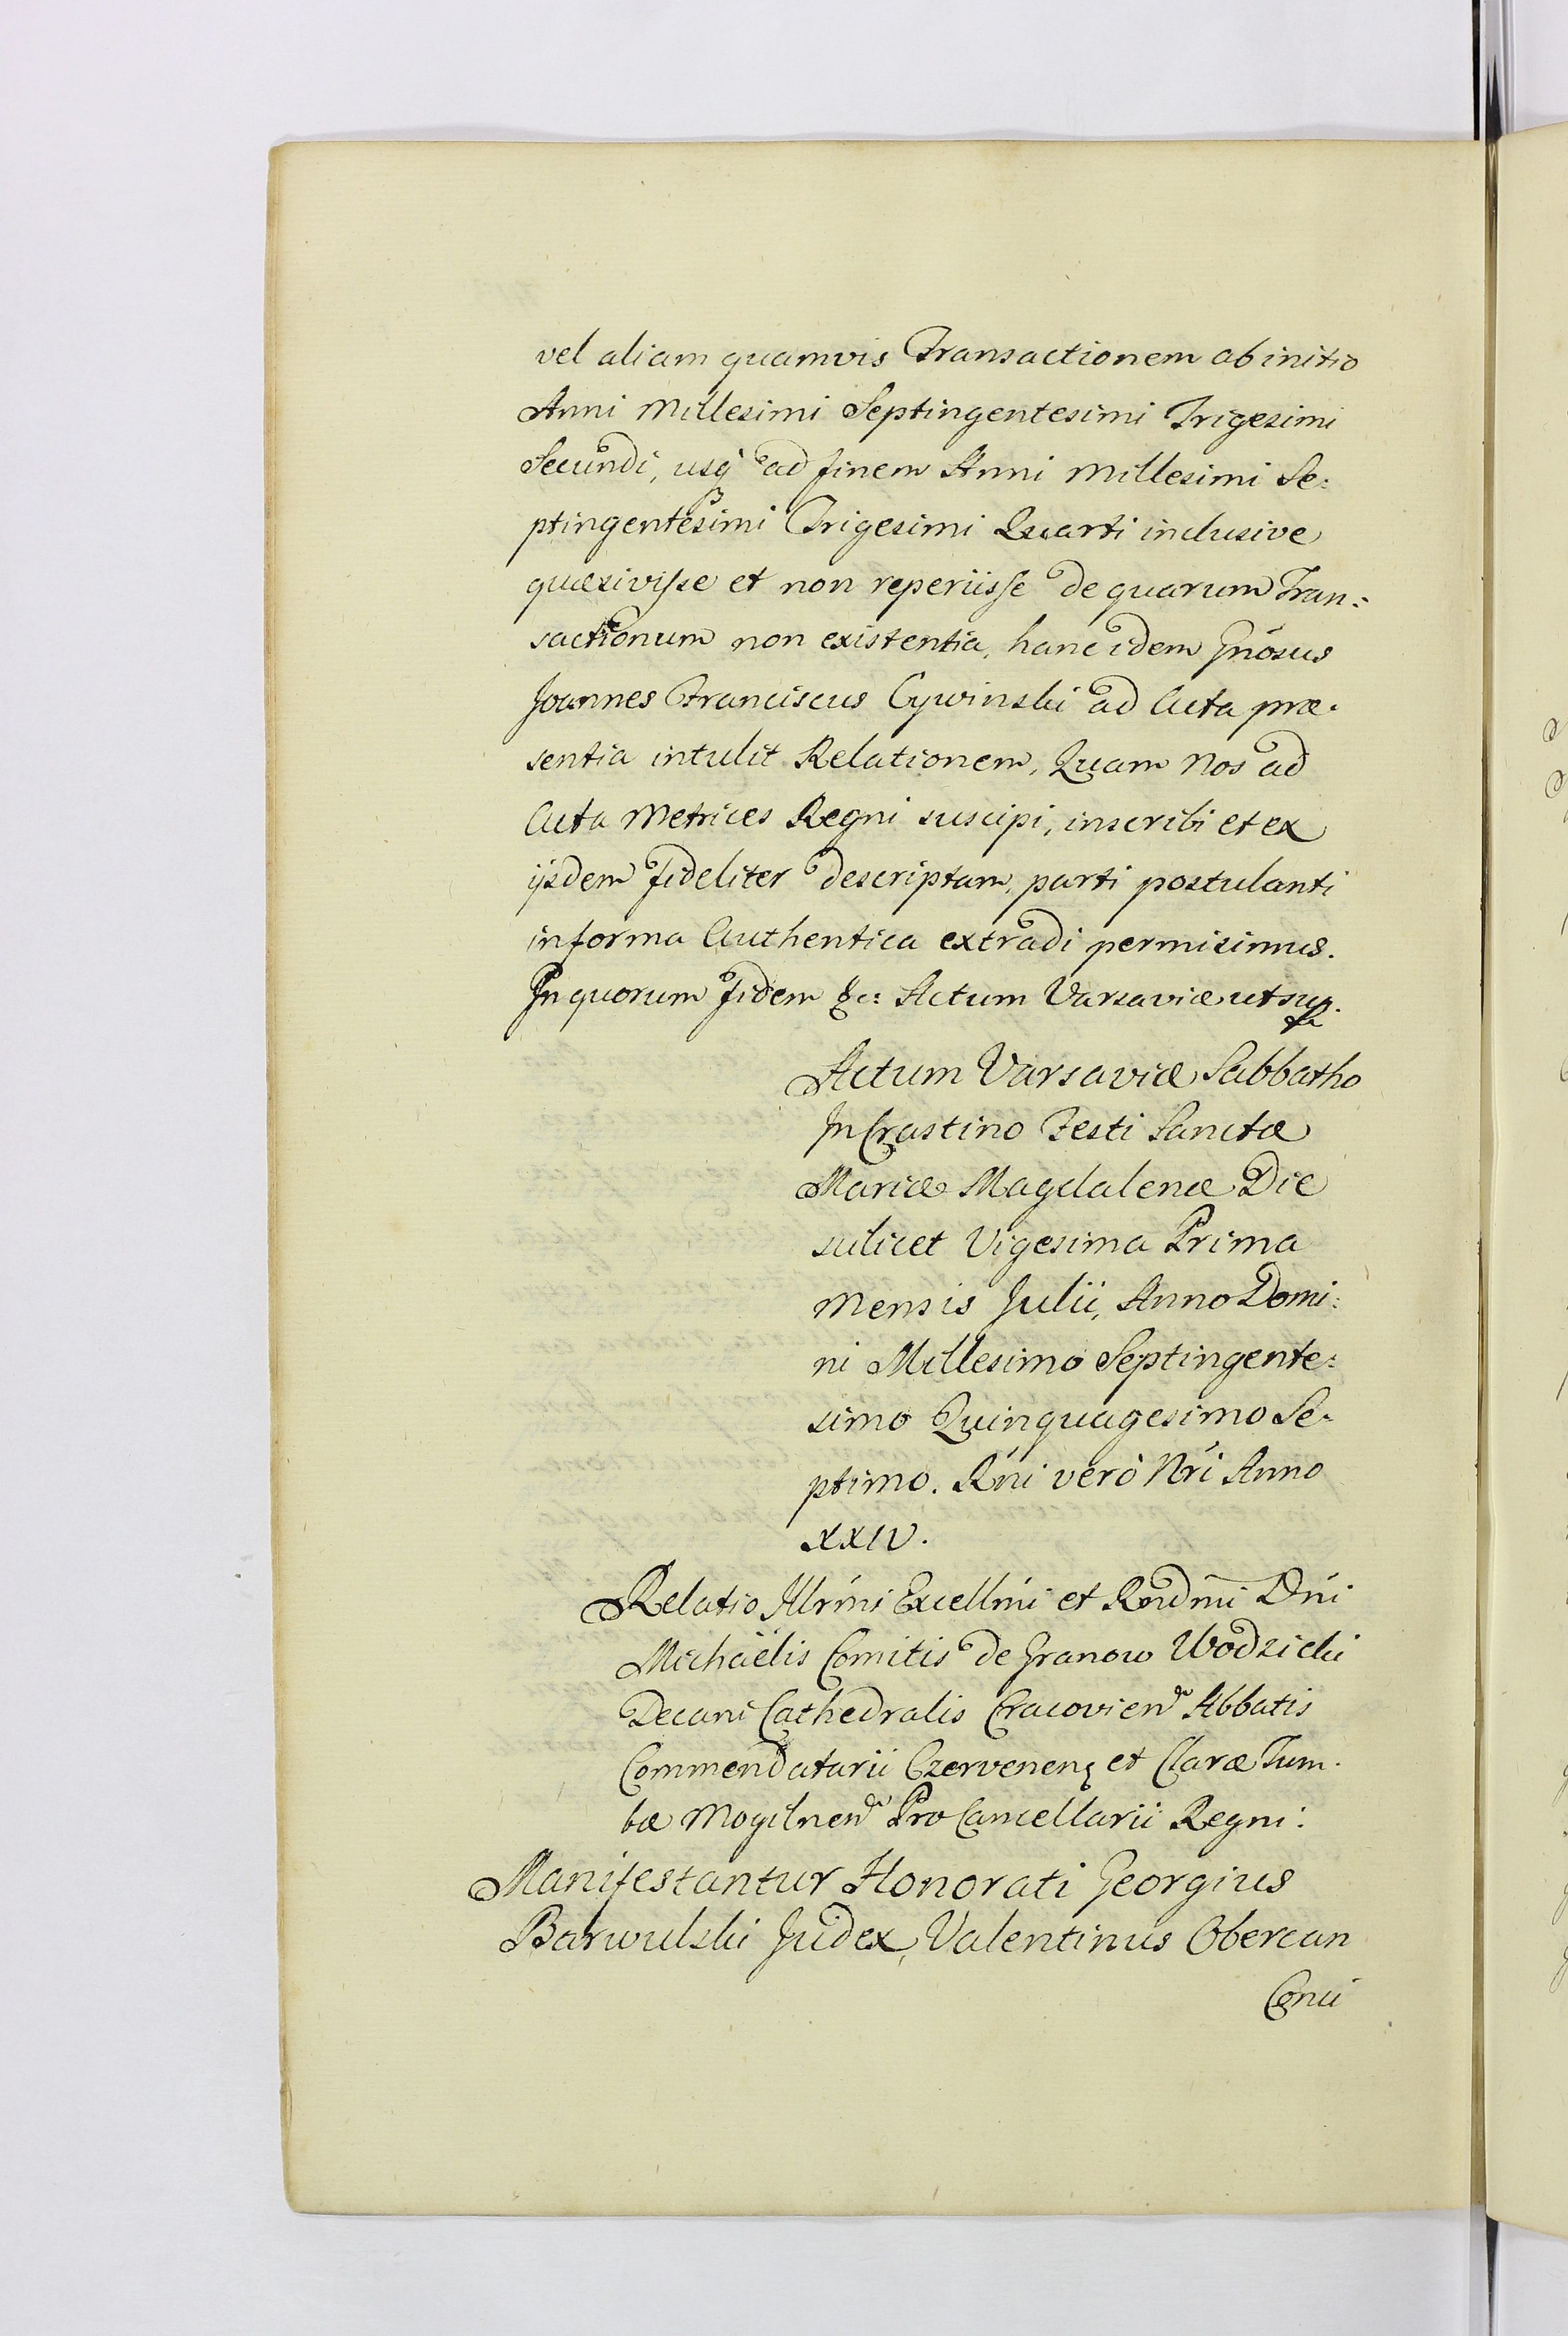 vel aliam quamvis Transactionem ab initio
Anni Millesimi Septingentesimi Trigesimi
Secundi, usq̃ ad finem Anni Millesimi Se:
ptingentesimi Trigesimi Quarti inclusive
quæsivisse et non reperiisse de quarum Tran:
sactionum non existentia, hanc idem Gnósus
Joannes Franciscus Cywinski ad Acta præ:
sentia intulit Relationem, Quam Nos ad
Acta Metrices Regni suscipi, inscribi et ex
ijsdem fideliter descriptam, parti postulanti
in forma Authentica extradi permisimus.
In quorum fidem &c: Actum Varsaviæ ut sup.
Actum Varsaviæ Sabbatho
In Crastino Festi Sanctæ
Mariæ Magdalenæ Die
scilicet Vigesima Prima
Mensis Julii, Anno Domi:
ni Millesimo Septingente:
simo Quinquagesimo Se:
ptimo. Rńi verò Nrí Anno
XXIV.
Relatio Illrḿi Excellḿi et Rndm̃i Dńi
Michäelis Comitis de Granow Wodzicki
Decani Cathedralis Cracovien Abbatis
Commendatarii Czervenen et Claræ Tum:
bæ Mogilnen Pro Cancellarii Regni:
Manifestantur Honorati Georgius
Barwulski Judex, Valentinus Obercan
Conci